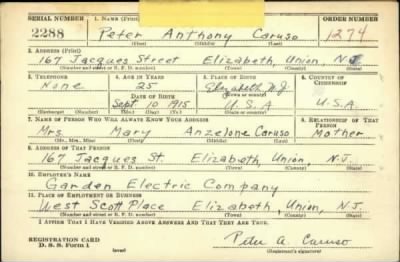 SERIAL NUMBER 1. NAME (Print) ORDER NUMBER
2288 Peter Anthony Caruso 1274
(First) (Middle) (Last)
2. ADDRESS (Print)
167 Jacques Street Elizabeth, Union, N.J.
(Number and street or R. F. D. number) (Town) (County) (State)
3. TELEPHONE 4. AGE IN YEARS 5. PLACE OF BIRTH 6. COUNTRY OF CITIZENSHIP
None 25 Elizabeth N.J.
DATE OF BIRTH (Town or county)
Sept 10 1915 U.S.A U.S.A.
(Exchange) (Number) (Mo.) (Day) (Yr.) (State or country)
7. NAME OF PERSON WHO WILL ALWAYS KNOW YOUR ADDRESS 8. RELATIONSHIP OF THAT PERSON
Mrs. Mary Anzelone Caruso Mother
(Mr., Mrs., Miss) (First) (Middle) (Last)
9. ADDRESS OF THAT PERSON
167 Jacques St. Elizabeth Union, N.J.
(Number and street or R. F. D. number) (Town) (County) (State)
10. EMPLOYER'S NAME
Garden Electric Company
11. PLACE OF EMPLOYMENT OR BUSINESS
West Scott Place Elizabeth, Union, N.J.
(Number and street or R. F. D. number) (Town) (County) (State)
I AFFIRM THAT I HAVE VERIFIED ABOVE ANSWERS AND THAT THEY ARE TRUE.
Peter A. Caruso
REGISTRATION CARD
D. S. S. Form 1 (over) (Registrant's signature)